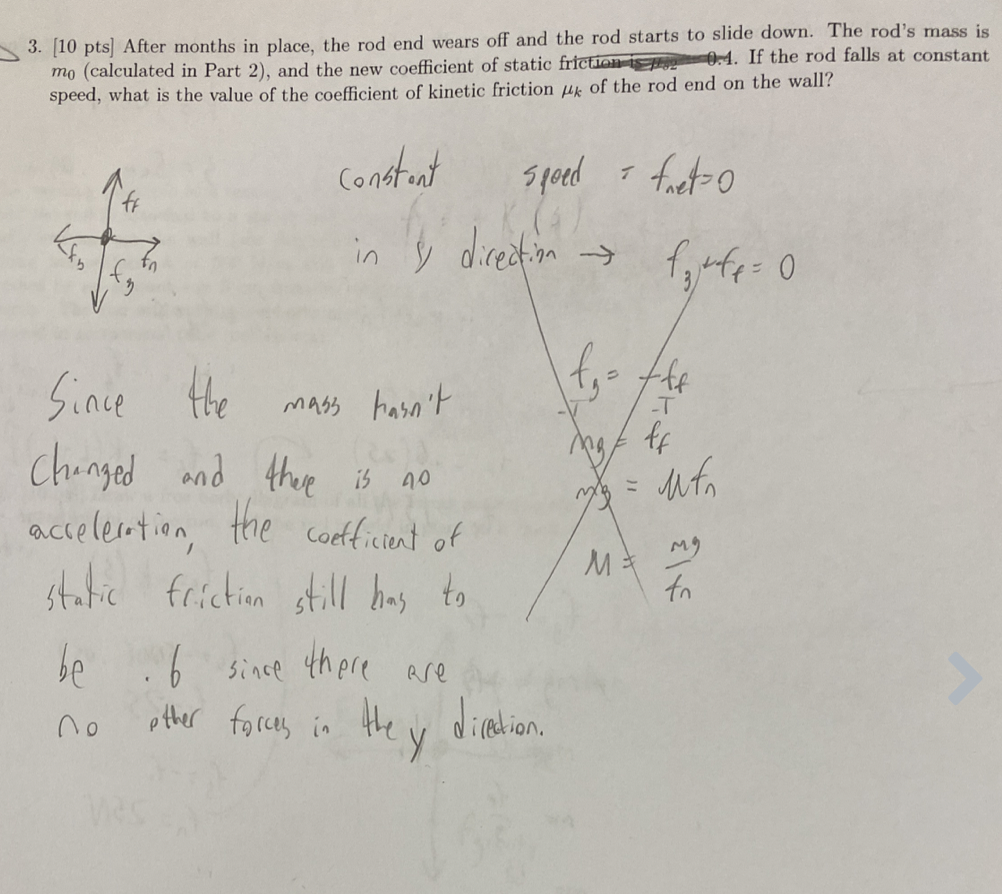 3. [10 pts] After months in place, the rod end wears off and the rod starts to slide down. The rod's mass is
m₀ (calculated in Part 2), and the new coefficient of static friction is 0.4. If the rod falls at constant
speed, what is the value of the coefficient of kinetic friction μₖ of the rod end on the wall?
constant speed = fnet=0
in y direction → fg + ff = 0
ff
fs
fn
fg
fg = +ff
-T -T
mg = ff
mg = μfn
M = mg/fn
Since the mass hasn't
Changed and there is no
acceleration, the coefficient of
static friction still has to
be .6 since there are
no other forces in the y direction.